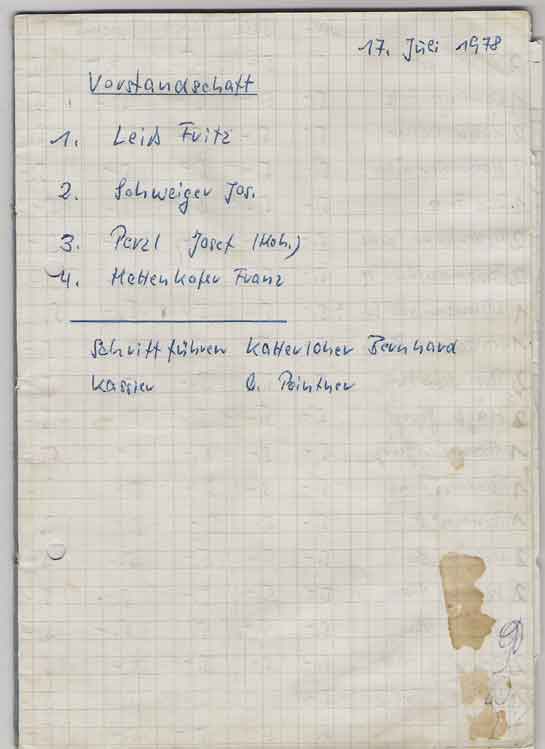 17. Juli 1978
Vorstandschaft
1. Leiß Fritz
2. Schweiger Jos.
3. Perzl Josef (Hoh.)
4. Hettenkofer Franz
Schriftführer Katterloher Bernhard
Kassier Pointner